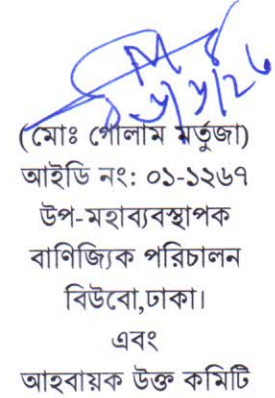 (মোঃ গোলাম মর্তুজা)
আইডি নং: ০১-১২৬৭
উপ-মহাব্যবস্থাপক
বাণিজ্যিক পরিচালন
বিউবো,ঢাকা।
এবং
আহবায়ক উক্ত কমিটি